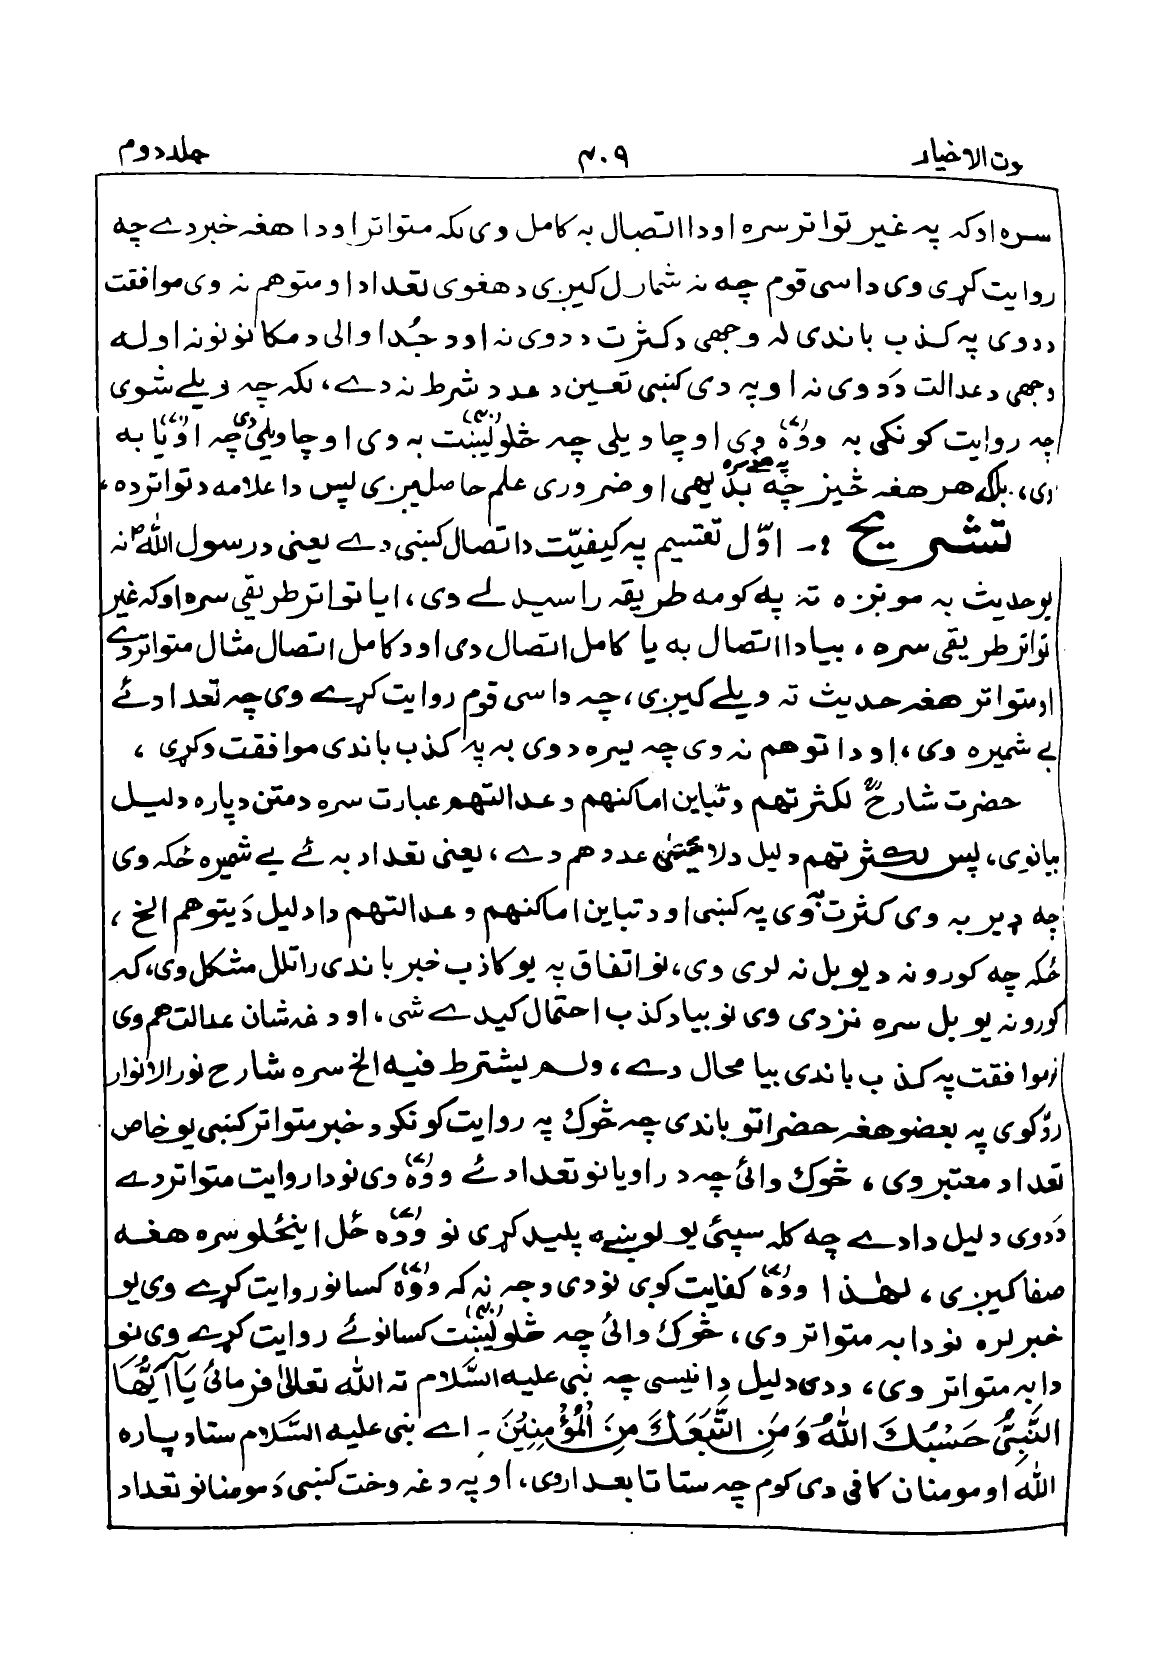 وت الاخیار ۴۰۹ جلد دوم
سره او که په غیر تواتر سره او دا اتصال به کامل وی لکه متواتر او دا هغه خبر دے چه
روایت کړی وی داسی قوم چه نه شمارل کیږی د هغوی تعداد او متوهم نه وی موافقت
د دوی په کذب باندی له وجهی د کثرت د دوی نه او د جُدا والی د مکانونو نه او له
وجهی د عدالت دَ دوی نه او په دی کښی تعین د عدد شرط نه دے، لکه چه ویلے شوی
چه روایت کونکی به ووهٔ (۷) وی او چا ویلی چه څلویښت (۴۰) به وی او چا ویلی دی چه اویا (۷۰) به
وی، بلکے هر هغه څیز چه په هغے سره بدیهی او ضروری علم حاصلیږی پس دا علامه د تواتر ده،
تشریح :- اوّل تقسیم په کیفیّت د اتصال کښی دے یعنی د رسول اللهؐ نه
یو حدیث به مونږه ته په کومه طریقه راسیدلے وی، ایا تواتر طریقی سره او که غیر
تواتر طریقی سره، بیا دا اتصال به یا کامل اتصال وی او د کامل اتصال مثال متواتر دے
او متواتر هغه حدیث ته ویلے کیږی، چه داسی قوم روایت کړے وی چه تعداد ئے
بے شمیره وی، او دا توهم نه وی چه ګیره دوی به په کذب باندی موافقت وکړی،
حضرت شارحؒ لکثرتهم و تباین اماکنهم و عدالتهم عبارت سره د متن دپاره دلیل
بیانوی، پس لکثرتهم دلیل د لا یحصی عددهم دے، یعنی تعداد به ئے بے شمیره ځکه وی
چه ډیر به وی کثرت به وی په کښی او د تباین اماکنهم و عدالتهم دا دلیل دَ یتوهم الخ،
ځکه چه کورونه د یو بل نه لری وی، نو اتفاق په یو کاذب خبر باندی راتلل مشکل وی، که
کورونه یو بل سره نزدی وی نو بیا د کذب احتمال کیدے شی، او دغه شان عدالت هم وی
نو موافقت په کذب باندی بیا محال دے، ولم یشترط فیه الخ سره شارح نور الانوار
ردّ کوی په بعضو هغه حضراتو باندی چه څوک په روایت کونکو د خبر متواتر کښی یو خاص
تعداد معتبر وی، څوک وائی چه د راویانو تعداد ئے ووهٔ (۷) وی نو دا روایت متواتر دے
دَ دوی دلیل دا دے چه کله سپئی یو لوښے پلید کړی نو ووهٔ (۷) ځل اینځلو سره هغه
صفا کیږی، لهٰذا ووهٔ (۷) کفایت کوی نو دی وجہ نہ که ووهٔ (۷) کسانو روایت کړے وی یو
خبر لره نو دا به متواتر وی، څوک وائی چه څلویښت (۴۰) کسانو ئے روایت کړے وی نو
دا به متواتر وی، ددی دلیل دا نیسی چه نبی علیه السَّلام ته الله تعالیٰ فرمائی یَآ اَیُّهَا
النَّبِیُّ حَسْبُكَ اللهُ وَ مَنِ اتَّبَعَكَ مِنَ الْمُؤْمِنِیْنَ - اے نبی علیه السَّلام ستا دپاره
الله او مومنان کافی دی کوم چه ستا تابعدار وی، او په دغه وخت کښی دَ مومنانو تعداد